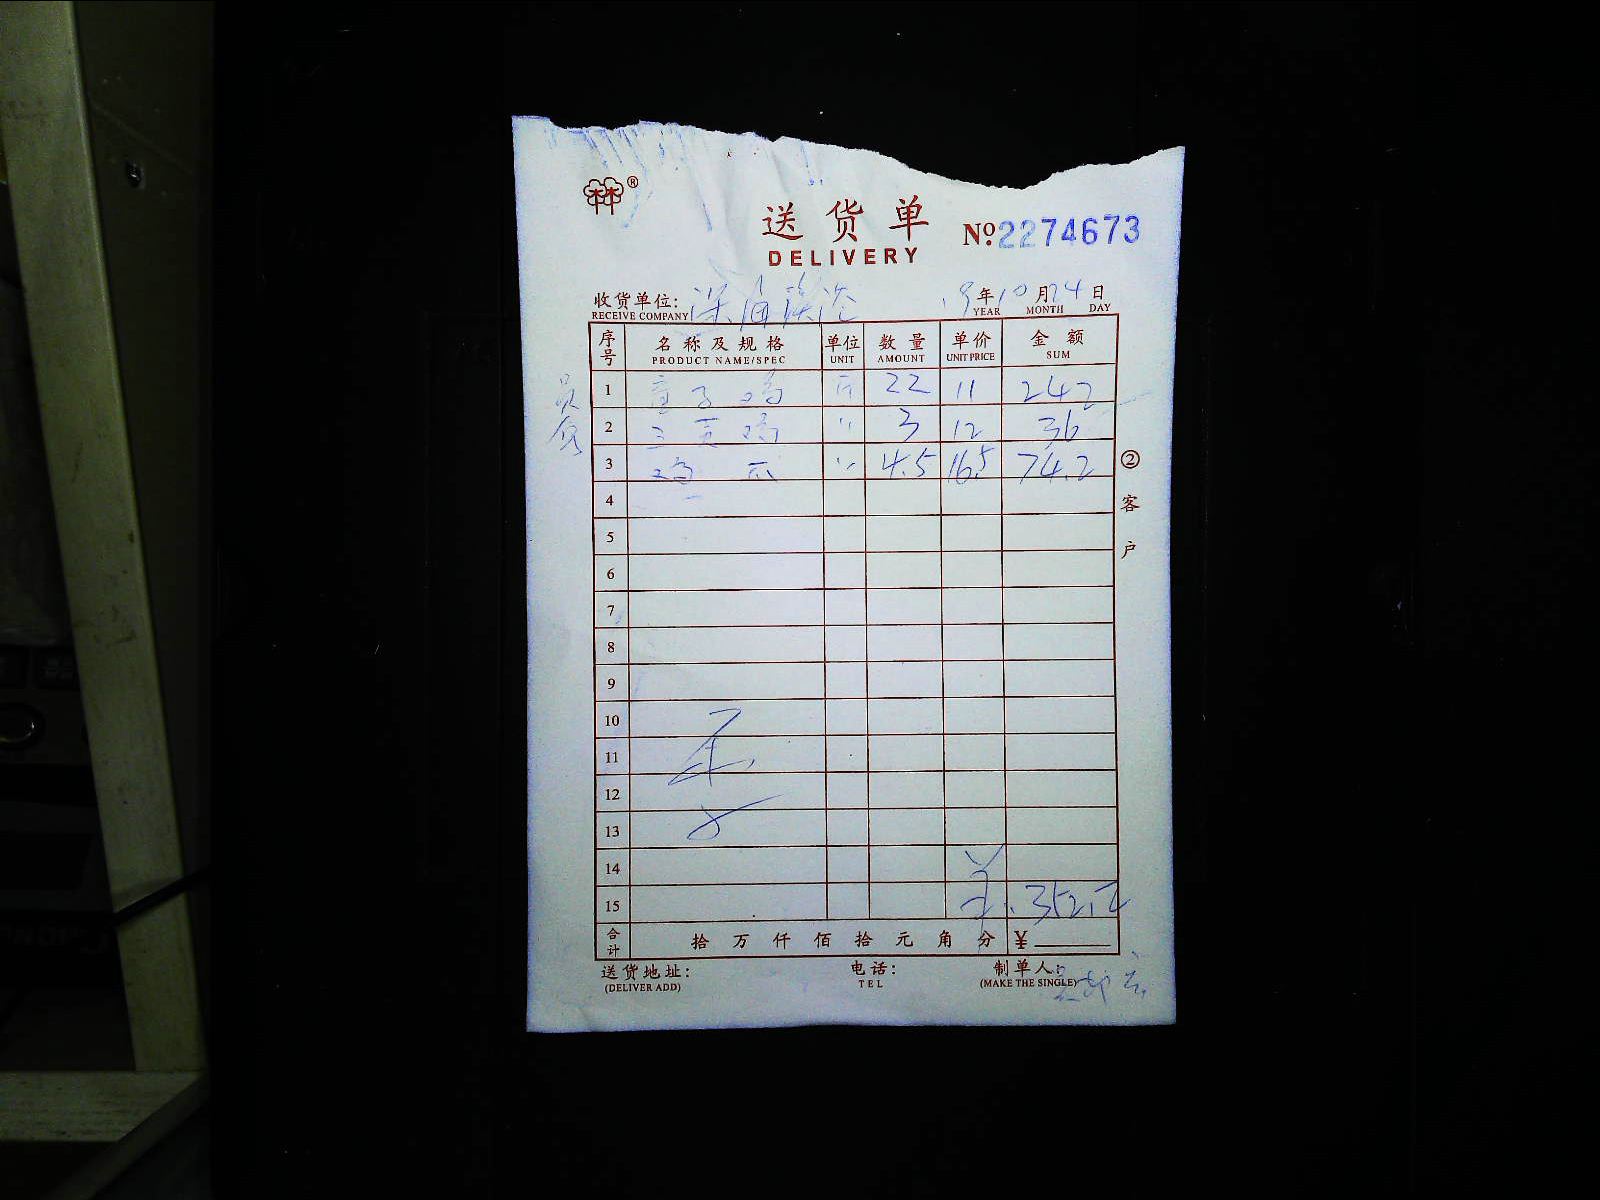 林林®
送货单
DELIVERY
№ 2274673
收货单位: 19年10月24日
RECEIVE COMPANY YEAR MONTH DAY
序号 名称及规格 单位 数量 单价 金额
PRODUCT NAME/SPEC UNIT AMOUNT UNIT PRICE SUM
1 童子鸡 斤 22 11 242
2 三黄鸡 〃 3 12 36
3 鸡爪 〃 4.5 16.5 74.2
4
5
6
7
8
9
10
11
12
13
14
15 352.2
合计 拾万仟佰拾元角分 ¥
②客户
送货地址: 电话: 制单人:
(DELIVER ADD) TEL (MAKE THE SINGLE)
员食